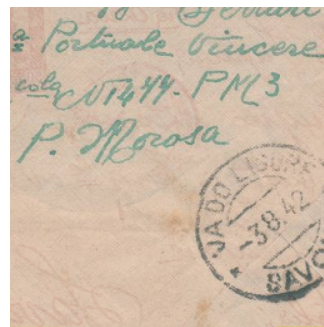 a Portuale Vincere
cola N 1444. PM3
P. Morosa
VADO LIGURE
-3.8.42
SAVO